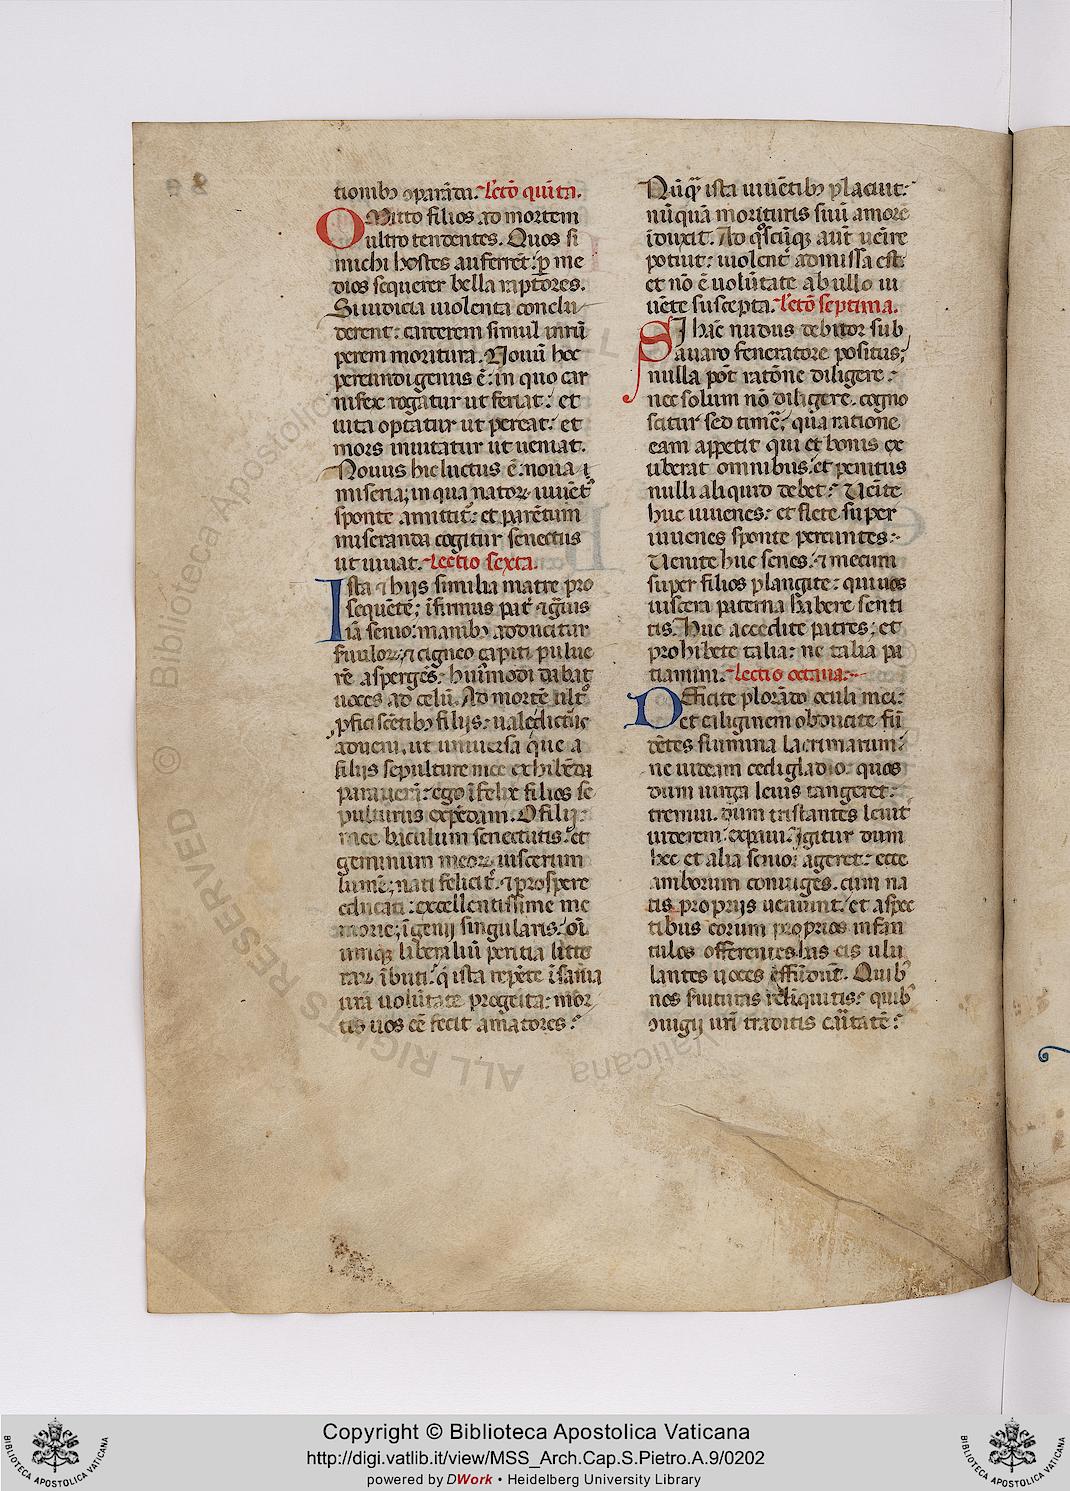 tionibꝫ oparãda. Lectõ quĩta.
OMitto filios ad mortem
ultro tendentes. Quos si
michi hostes auferrẽt: ꝑ me
dios sequerer bella raptores.
Si iudicia uiolenta conclu
derent: carcerem simul irrũ
perem moritura. Nouũ hoc
pereundi genus ẽ: in quo car
nifex rogatur ut feriat: et
uita optatur ut pereat: et
mors inuitatur ut ueniat.
Nouus hic luctus ẽ. noua ⁊
miseria; in qua natoꝝ iuuẽtꝰ
sponte amittit᷑: et parẽtum
miseranda cogitur senectus
ut uiuat. Lectio sexta.
Ista ⁊ hijs similia matre pro
sequẽte; ĩfirmus pat᷑ ⁊ gᷓuis
iã senio: manibꝫ adducitur
suuloꝝ; ⁊ cigneo capiti pulue
rẽ aspergẽs: huiꝰmodi dabat
uoces ad celũ. Ad mortẽ ultͦ
ꝓficiscẽtibꝫ filijs: ualedictur
adueni, ut uniuersa que a
filijs sepulture mee exhibẽda
paraueram: ego ĩfelix filios se
pulturus expẽdam. O filij:
mee baculum senectutis: et
geminum meoꝝ uiscerum
lumẽ; nati felicit᷑: ⁊ prospere
educati: excellentissime me
morie; ĩgenij singularis: oĩ
umqꝫ liberaliũ peritia litte
raꝝ ĩbuti: q̃ ista repẽte ĩsania
urã uolũtate progeita: mor
tis uos eẽ fecit amatores:
Nũqᷓ ista uiuẽtibꝫ placuit:
nũquã morituris suũ amorẽ
ĩduxit. Ad qͦscũqꝫ aut̃ uẽire
potuit: uiolent᷑ admissa est:
et nõ ẽ uolũtate ab ullo ui
uẽte suscepta. Lectõ septima.
SI hãc nudus debitor sub
auaro feneratore positus;
nulla pot̃ ratõne diligere:
nec solum nõ diligere. cogno
scitur sed timẽ; qua ratione
eam appetit qui et bonis ex
uberat omnibus: et penitus
nulli aliquid debet: Uẽite
huc iuuenes: et flete super
iuuenes sponte pereuntes:
Uenite huc senes: ⁊ mecum
super filios plangite: qui uos
uiscera paterna habere senti
tis. Huc accedite patres; et
prohibete talia: ne talia pa
tiamini. Lectio octaua:
DEficite plorãdo oculi mei:
et caliginem obducite fũ
dẽtes flumina lacrimarum:
ne uideam cedi gladio: quos
dum uirga leuis tangeret:
tremui. dum tristantes leuit᷑
uiderem: expaui. Igitur dum
hec et alia senior ageret: ecce
amborum coniuges. cum na
tis proprijs ueniunt: et aspec
tibus eorum proprios infan
tulos offerentes has eis ulu
lantes uoces effũdunt. Quibꝰ
nos fruituras relĩquitis: quibꝰ
ꝯiugij urĩ traditis caritatẽ:
ALL RIGHTS RESERVED © Biblioteca Apostolica Vaticana
Copyright © Biblioteca Apostolica Vaticana
http://digi.vatlib.it/view/MSS_Arch.Cap.S.Pietro.A.9/0202
powered by DWork • Heidelberg University Library
BIBLIOTECA APOSTOLICA VATICANA
BIBLIOTECA APOSTOLICA VATICANA